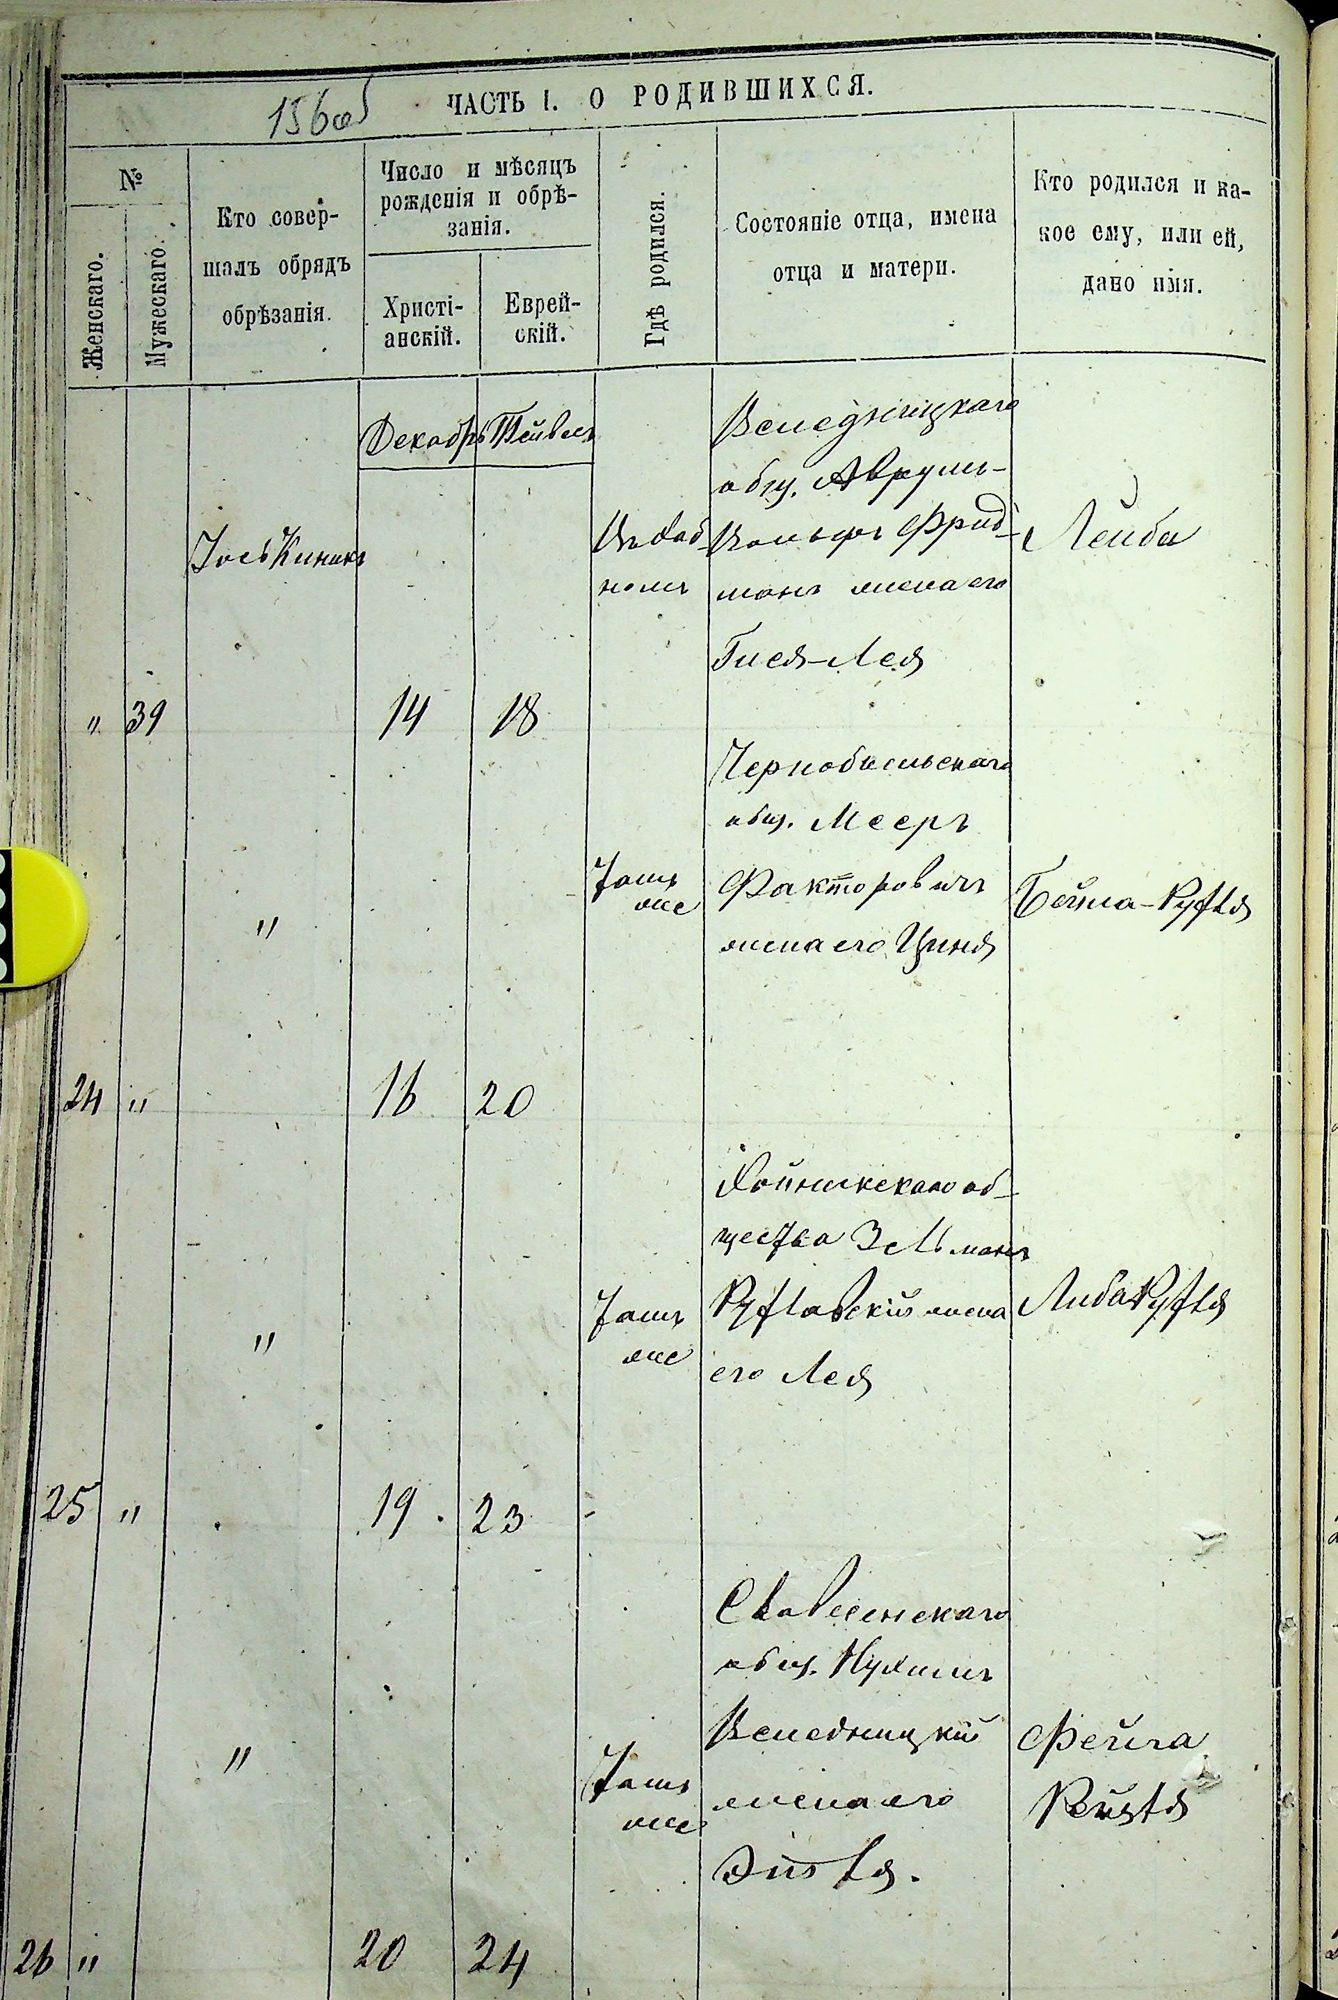 156об
ЧАСТЬ I. О РОДИВШИХСЯ.
№
Женскаго.
Мужескаго.
Кто совер-
шалъ обрядъ
обрѣзанія.
Число и мѣсяцъ
рожденія и обрѣ-
занія.
Христі-
анскій.
Еврей-
скій.
Гдѣ родился.
Состояніе отца, имена
отца и матери.
Кто родился и ка-
кое ему, или ей,
дано имя.
Декабрь Тейвесъ
" 39
14 18
общ. Аврумъ-
Вольфъ Фрид-
манъ жена его
Гися-Лея
Лейба
24 "
"
16 20
Тамъ
же
Чернобыльскаго
общ. Мееръ
Факторовичъ
жена его Циня
Бейла-Рухля
25 "
"
19 23
Тамъ
же
об-
щества Зельманъ
жена
его Лея
Либа Рухля
26 "
"
20 24
Тамъ
же
общ. Нухимъ
Веледницкій
жена его
Фейга